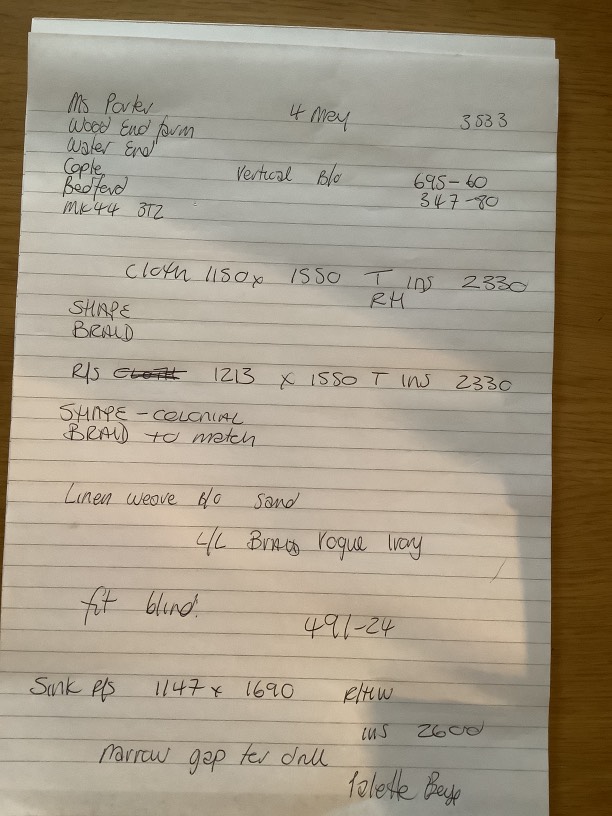 Ms Porter 4 May 3533
Wood End farm
Water End
Cople
Vertical B/o 695-60
Bedford 347-80
MK44 3TZ
Cloth 1150 x 1550 T ins 2330
RH
SHAPE
BRAID
R/S 1213 x 1550 T INS 2330
SHAPE - COLONIAL
BRAID to match
Linen weave B/o Sand
L/L Braid Vogue Ivory
fit blind.
491-24
Sink R/S 1147 x 1690 R/HW
ins 2600
narrow gap for drill
Palette Beige